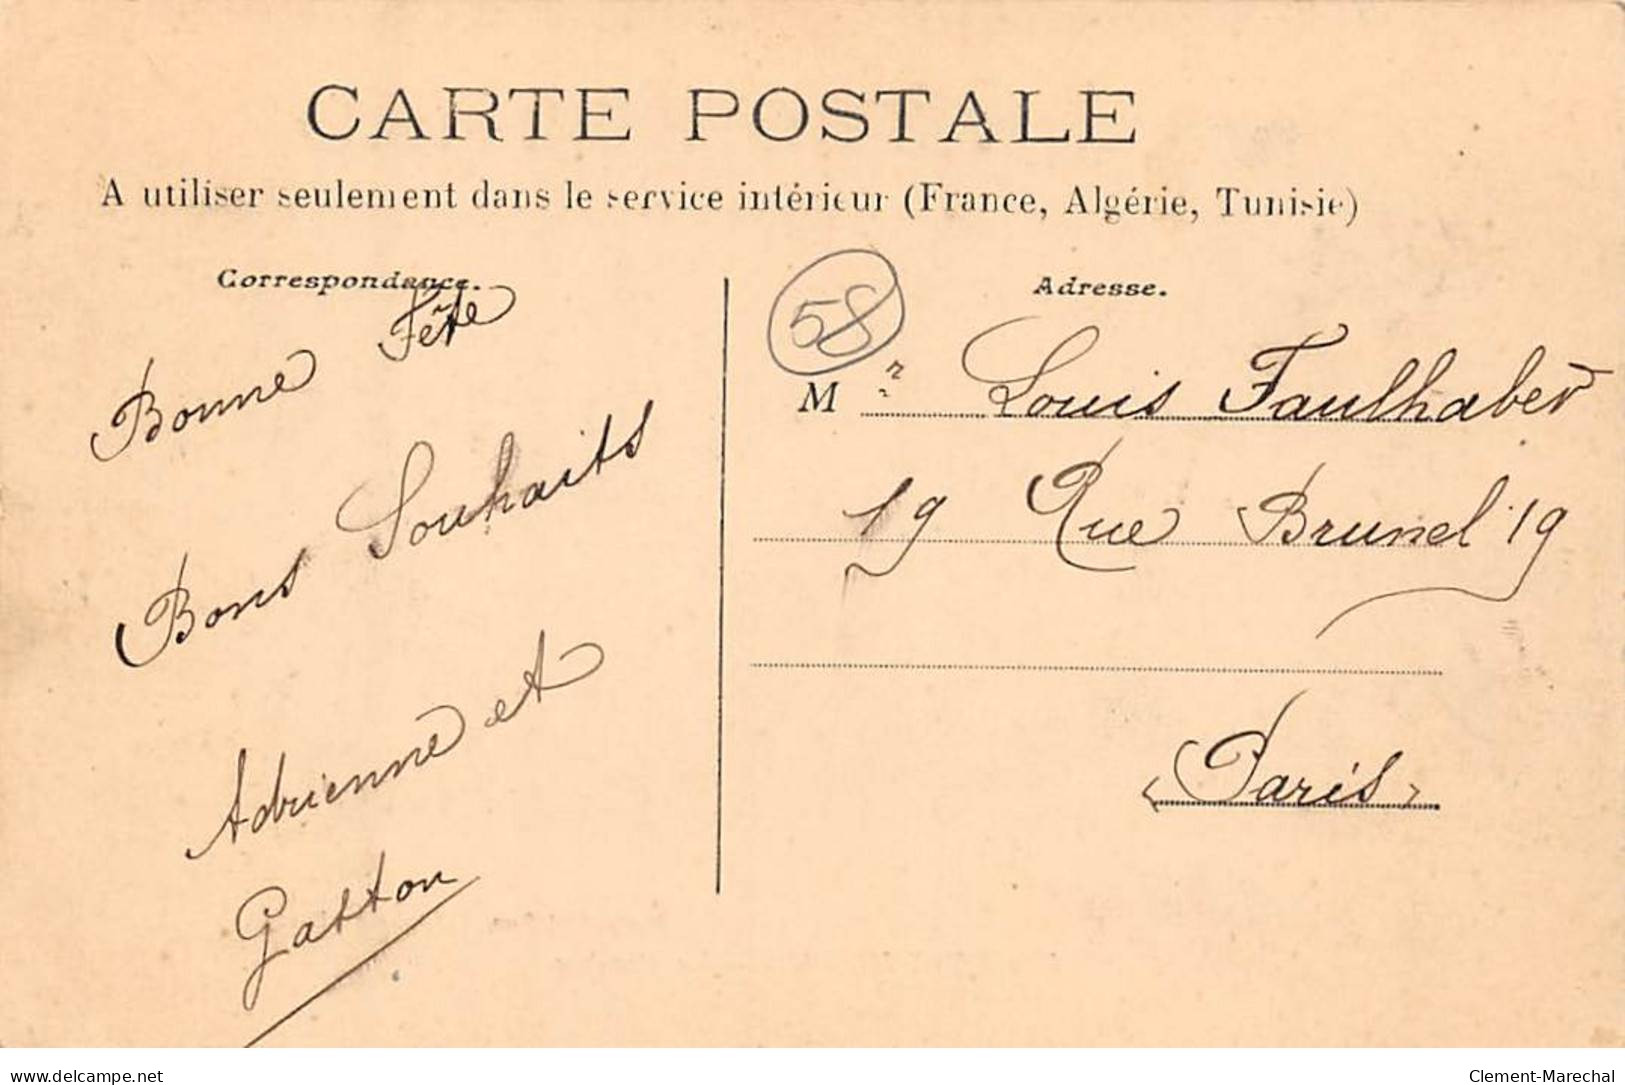 CARTE POSTALE
A utiliser seulement dans le service intérieur (France, Algérie, Tunisie)
Correspondance.
Bonne Fête
Bons Souhaits
Adrienne et
Gatton
Adresse.
58
Mr Louis Faulhaber
19 Rue Brunel 19
Paris
delcampe.net
Clement-Marechal